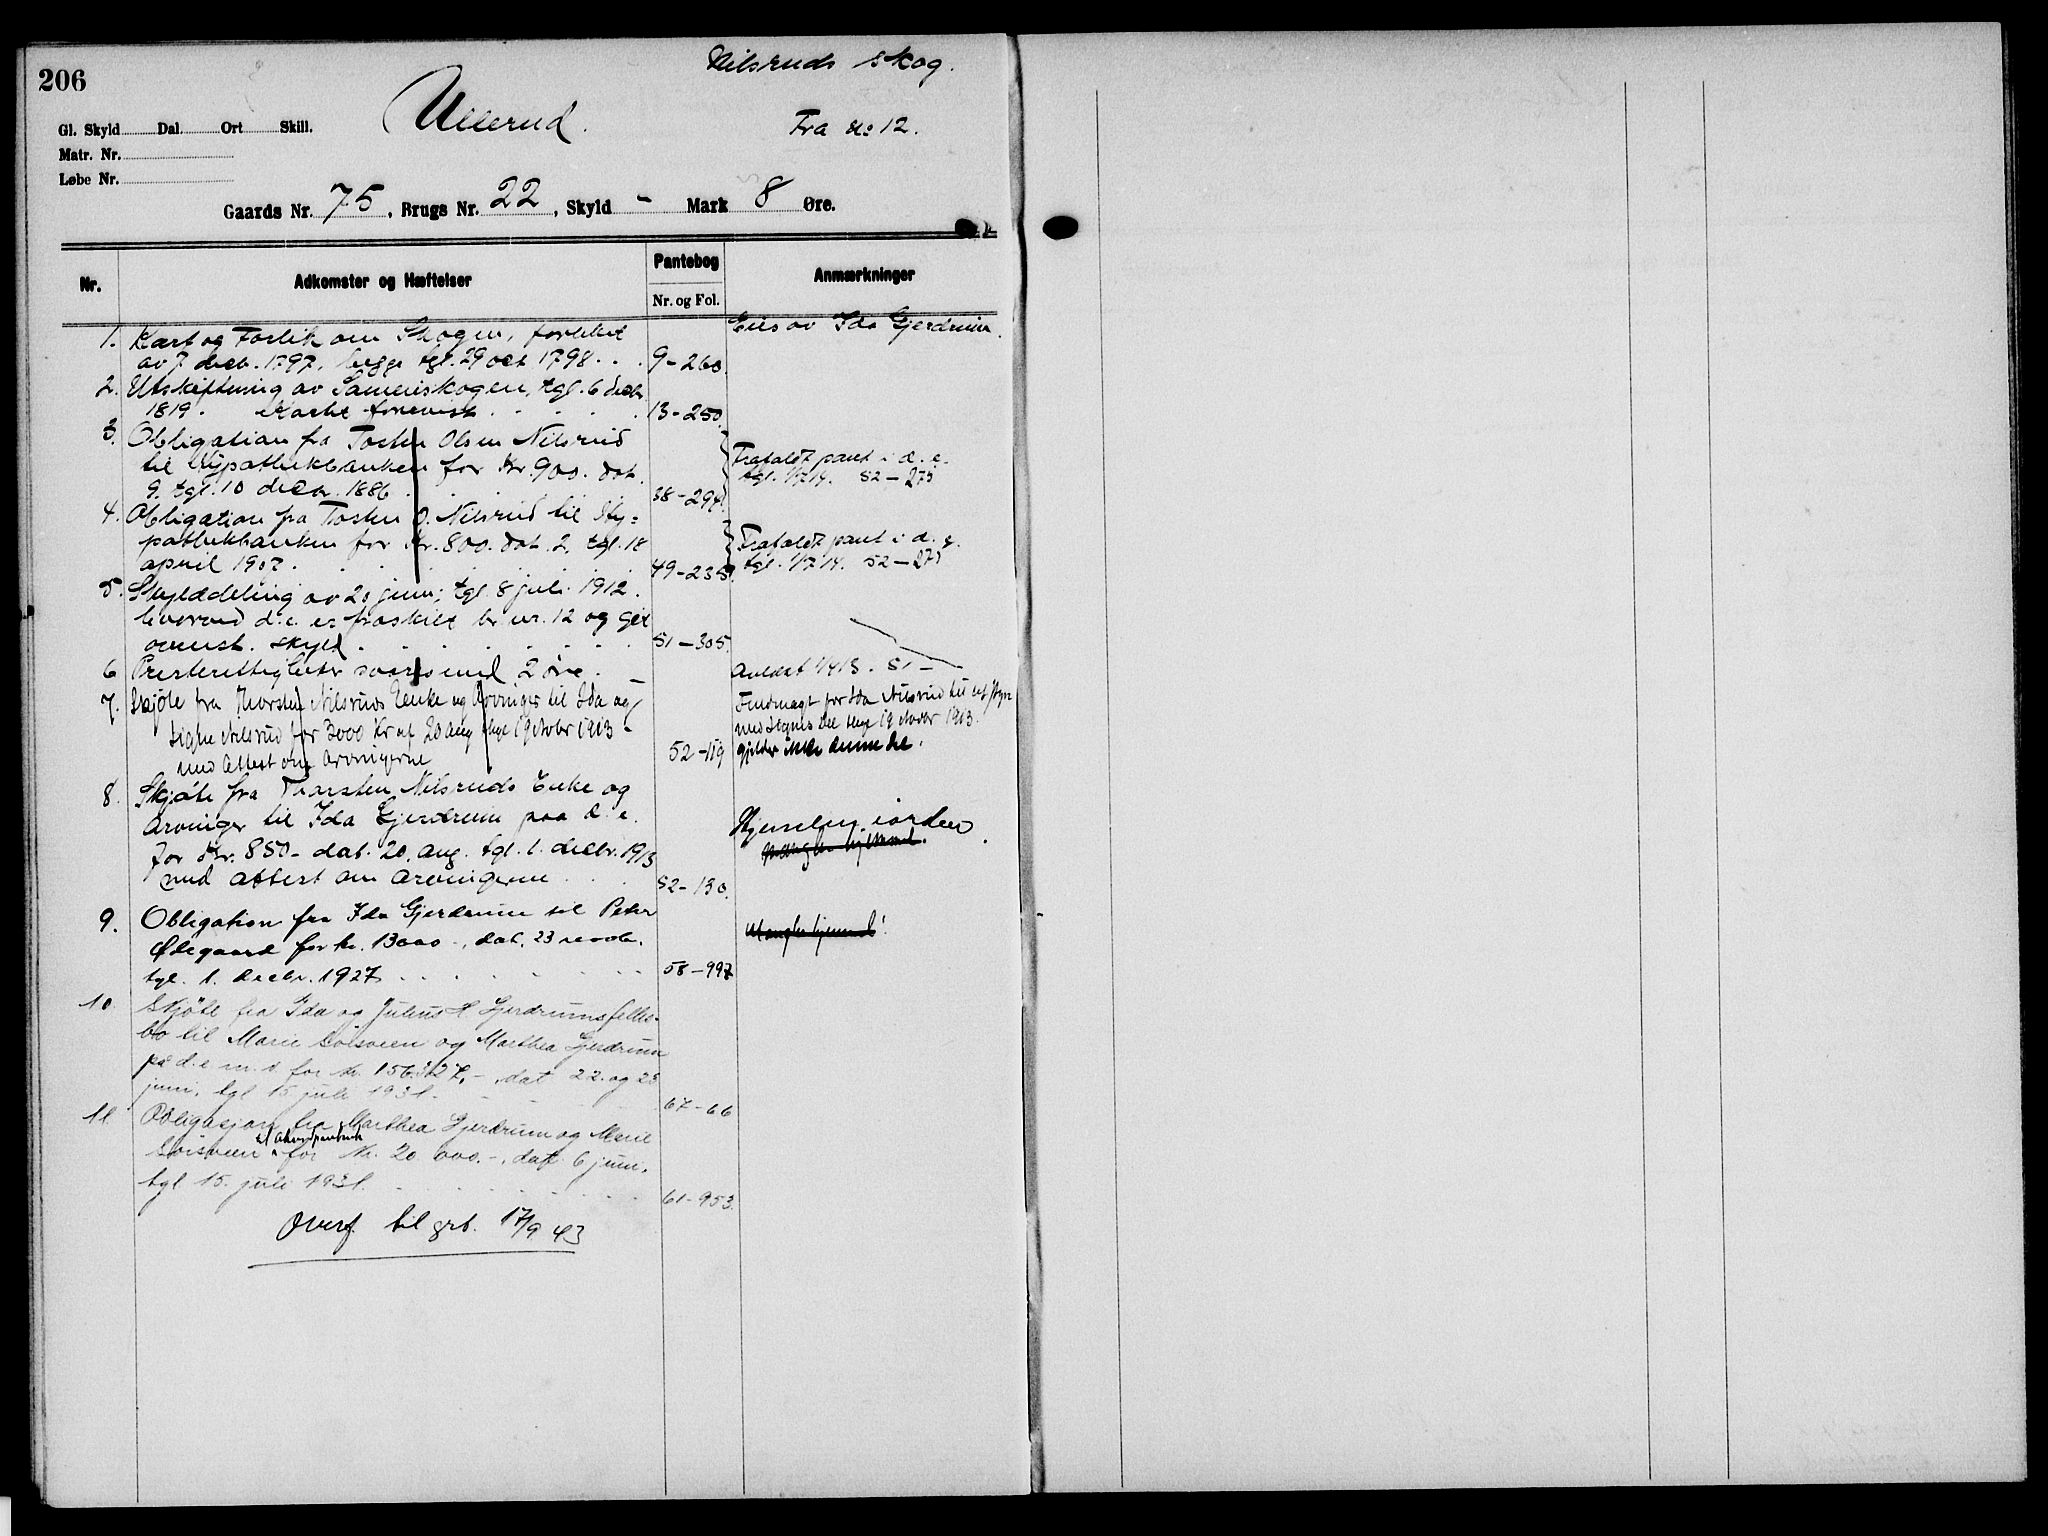 206
Nilsruds skog.
Ullerud.
Fra No 12.
Gl. Skyld Dal. Ort Skill.
Matr. Nr.
Løbe Nr.
Gaards Nr. 75, Brugs Nr. 22, Skyld - Mark 8 Øre.
Nr.
Adkomster og Hæftelser
Pantebog
Nr. og Fol.
Anmærkninger
Eies av Ida Gjerdrum.
1. Kart og Forlik om Skogen, forliket
av 7 decb. 1797, begge tgl. 29 oct 1798. . . 9-260.
2. Utskiftning av Sameieskogen, tgl. 6 decbr
1819. Karte forevist . . . . 13-250.
3. Obligation fra Tosten Olsen Nilsrud
til Hypothekbanken for Kr. 900. dat.
9. tgl. 10 decbr. 1886 . . . 38-294.
Frafaldt pant i d. e.
tgl. 1/7 14. 52-275
4. Obligation fra Tosten O. Nilsrud til Hy=
pothekbanken for Kr. 800. dat. 2, tgl. 18
april 1907. . . . 49-235.
Frafaldt pant i d. e.
tgl. 1/7 14. 52-275
5. Skylddeling av 20 juni, tgl. 8 juli 1912.
hvorved d. e. er fraskilt br. nr. 12 og git
ovenst. skyld . . . . 51-305.
6 Presterettigheter svares med 2 øre. -
Avløst 1/4 13. 51-
7. Skjøte fra Thorsten Nilsruds Enke og Arvinger til Ida og
Signe Nilsrud for 3000 Kr af 20 Aug thgl 1 October 1913 -
med Attest om Arvingerne
52-119
Fuldmagt for Ida Nilsrud til
med Signes Del thgl 1 October 1913.
gjelder ikke denne del.
8. Skjøte fra Thorsten Nilsruds Enke og
Arvinger til Ida Gjerdrum paa d. e.
for Kr. 850- dat. 20. aug. tgl. 1. decbr. 1913
med attest om arvingerne . . 52-130.
Hjemmelen i orden
mangler hjemmel.
9. Obligation fra Ida Gjerdrum til Peter
Ødegaard for kr. 13000-, dat. 23 novbr.
tgl. 1. decbr. 1927 . . . . 58-997
Mangler hjemmel!
10. Skjøte fra Ida og Julius H Gjerdrums felles-
bo til Marie Soisveen og Marthea Gjerdrum
på d. e m. v for kr. 15632 7,-, dat 22. og 23
juni, tgl 15 juli 1931. - - - 67-66
11 Obligasjon fra Marthea Gjerdrum og Marie
Soisveen for Kr. 20 000.-, dat. 6 juni,
tgl 15. juli 1931. - - - 61-953.
Overf. til grb. 17/9 43